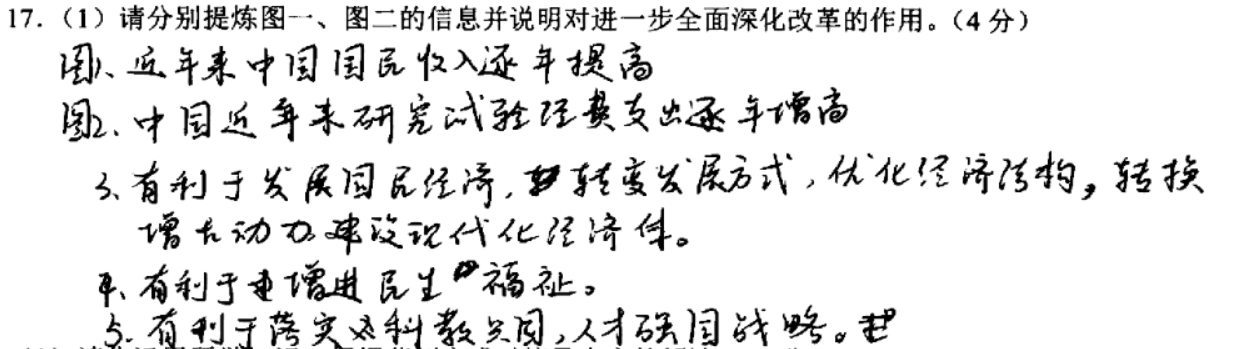 17.（1）请分别提炼图一、图二的信息并说明对进一步全面深化改革的作用。（4 分）
图1、近年来中国国民收入逐年提高
图2、中国近年来研究试验经费支出逐年增高
3、有利于发展国民经济，转变发展方式，优化经济结构，转换
增长动力建设现代化经济体。
4、有利于增进民生福祉。
5、有利于落实科教兴国，人才强国战略。